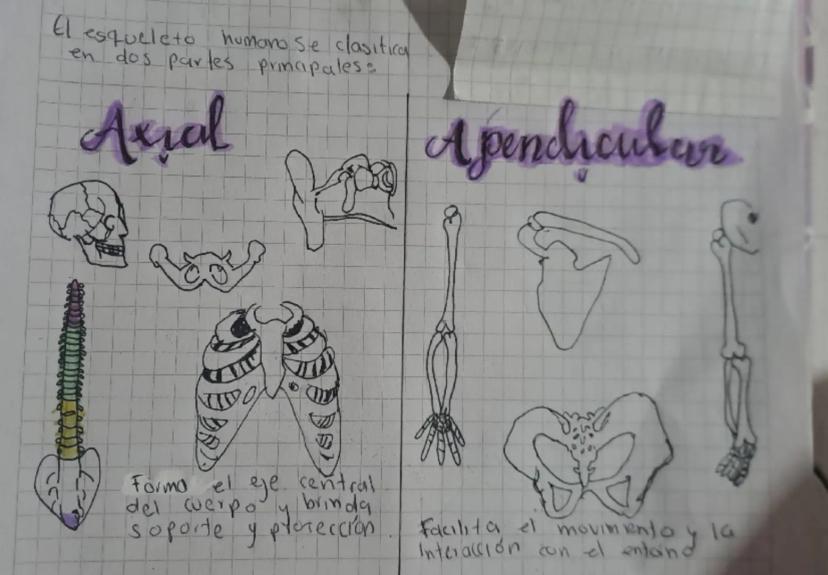 El esqueleto humano se clasifica
en dos partes principales:
Axial
Forma el eje central
del cuerpo y brinda
soporte y protección
Apendicular
Facilita el movimiento y la
interacción con el entorno